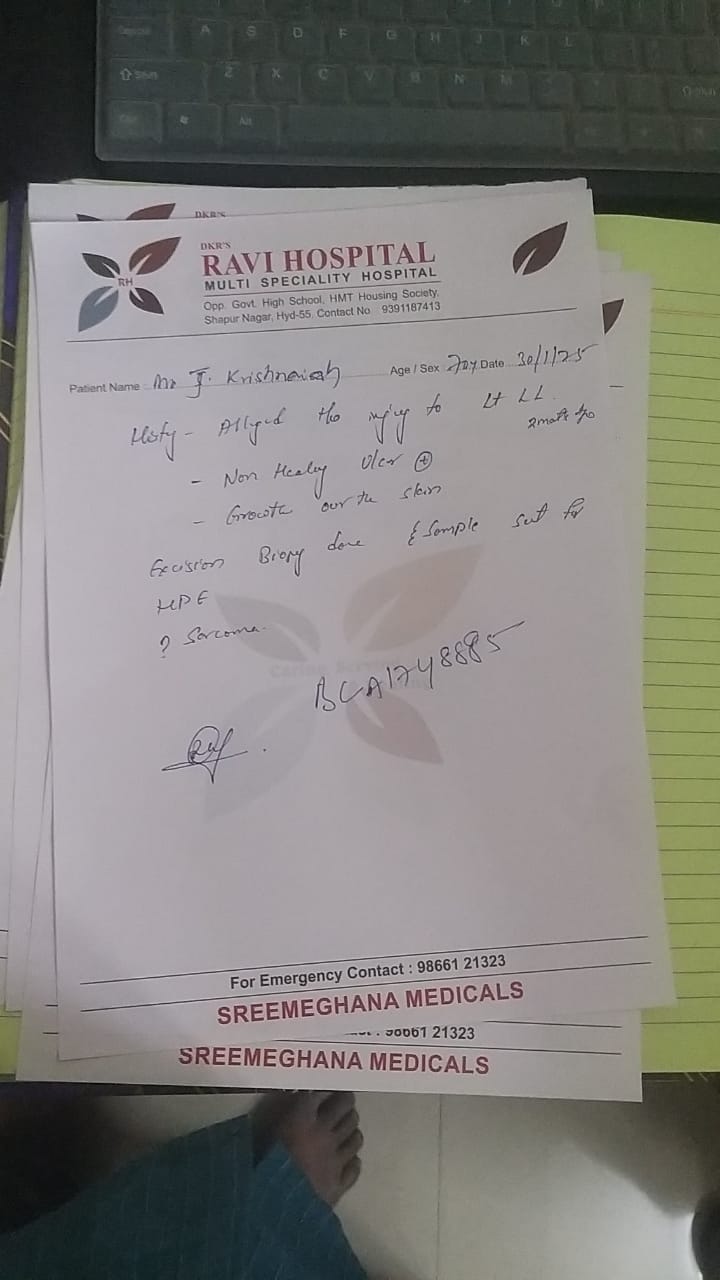 Shift
A S D F G H J K L
Z X C V B N M
Alt
DKR'S
DKR'S
RAVI HOSPITAL
MULTI SPECIALITY HOSPITAL
RH
Opp. Govt. High School, HMT Housing Society,
Shapur Nagar, Hyd-55, Contact No. 9391187413
Patient Name : Mr J. Krishnaiah Age / Sex 70y Date 30/1/25
History - Alleged H/o injury to Lt LL
2 months ago
- Non Healing Ulcer +
- Growth over the skin
Excision Biopsy done & Sample sent for
HPE
? Sarcoma
BCA1748885
For Emergency Contact : 98661 21323
SREEMEGHANA MEDICALS
98661 21323
SREEMEGHANA MEDICALS